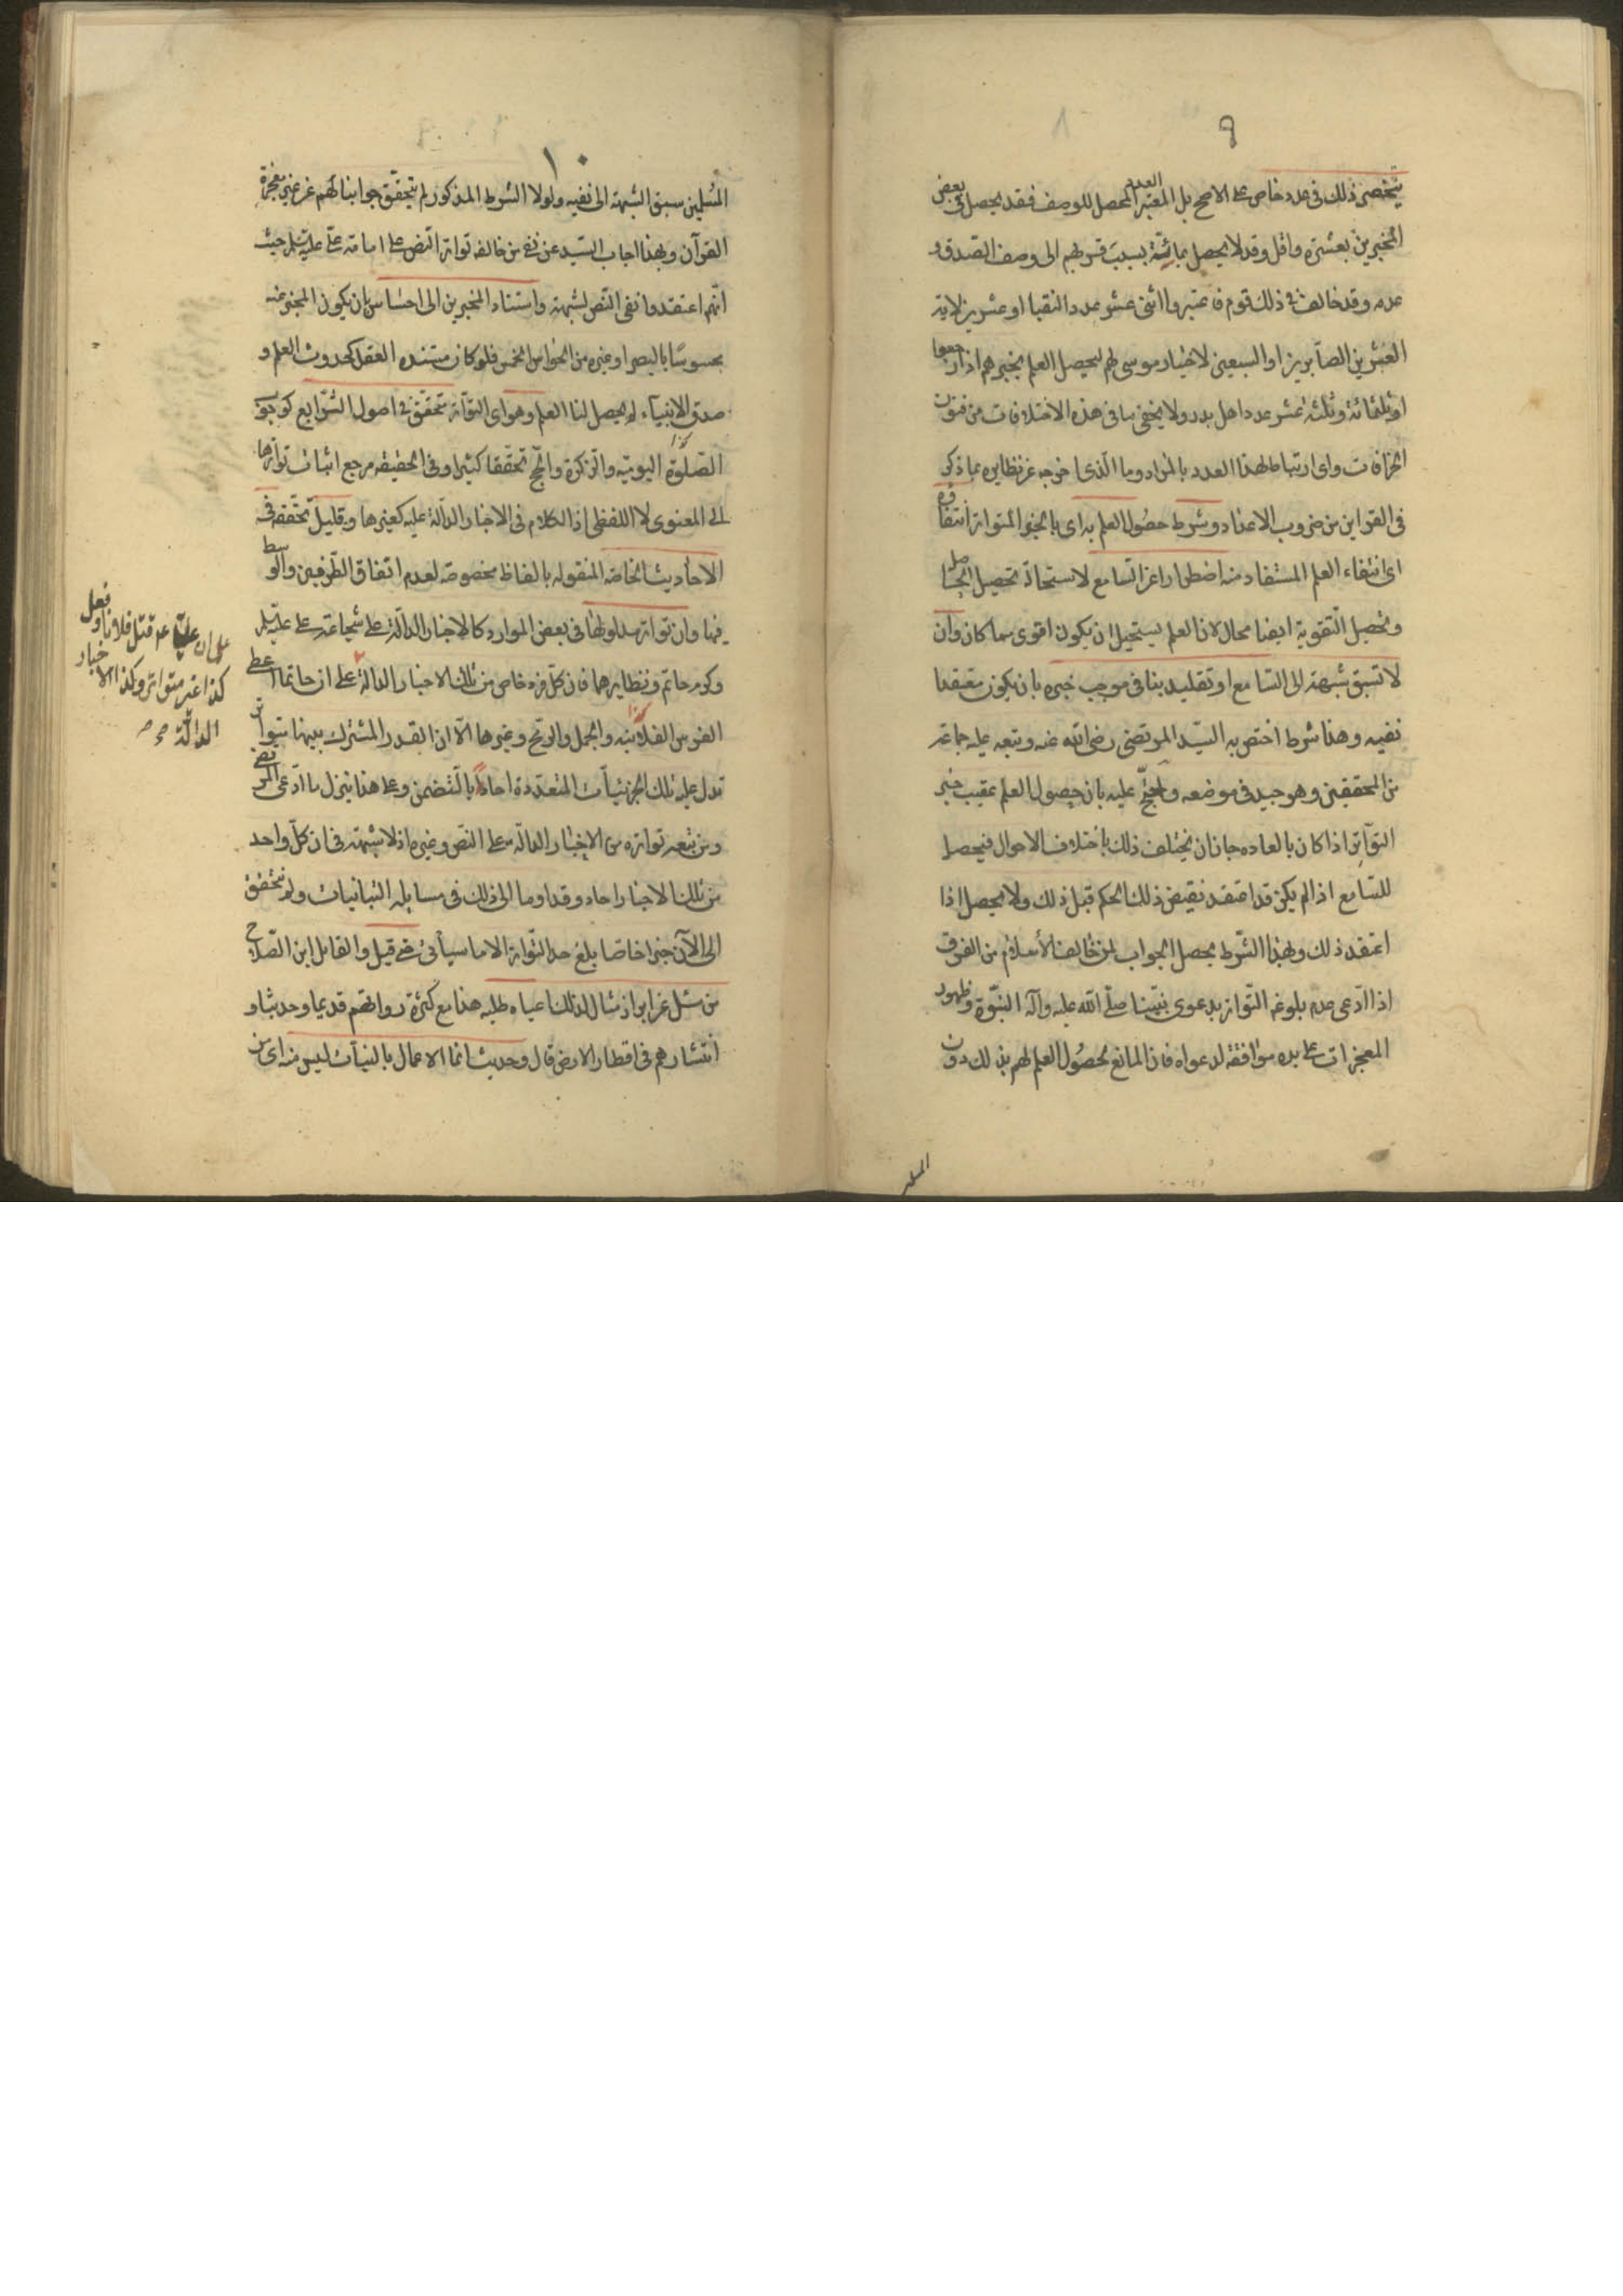 ٩
ينحصر ذلك فى عدد خاص على الاصح بل المعتبر العدد المحصل للوصف فقد يحصل فى بعض
المخبرين بعشرة واقل وقد لا يحصل بمائة بسبب قربهم الى وصف الصدق و
عدمه وقد خالف فى ذلك قوم فاعتبروا اثنى عشر عدد النقبا او عشرين لاية
العشرين الصابرين او السبعين لاختيار موسى لهم ليحصل العلم بخبرهم اذا رجعوا
او ثلثمائة وثلثة عشر عدد اهل بدر ولا يخفى ما فى هذه الاختلافات من فنون
الجزافات واى ارتباط لهذا العدد بالمراد وما الذى اخرجه عن نظايره بما ذكر
فى القراين من ضروب الاعداد وشرط حصول العلم به اى بالخبر المتواتر انتفاؤه
اى انتفاء العلم المستفاد منه اضطرارا عن السامع لاستحالة تحصيل الحاصل
وتحصيل التقوية ايضا محال لان العلم يستحيل ان يكون اقوى مما كان وان
لا تسبق شبهة الى السامع او تقليد ينافى موجب خبره بان يكون معتقدا
نفيه وهذا شرط اختص به السيد المرتضى رضى الله عنه وتبعه عليه جماعة
من المحققين وهو جيد فى موضعه واحتج عليه بان حصول العلم عقيب خبر
التواتر اذا كان بالعاده جاز ان يختلف ذلك باختلاف الاحوال فيحصل
للسامع اذا لم يكن قد اعتقد نقيض ذلك الحكم قبل ذلك ولا يحصل اذا
اعتقد ذلك وبهذا الشرط يحصل الجواب لمن خالف الاسلام من الفرق
اذا ادعى عدم بلوغه التواتر بدعوى نبينا صلى الله عليه وآله النبوة وظهور
المعجزات على يده موافقة لدعواه فان المانع لحصول العلم لهم بذلك دون
المسلمين
١٠
المسلمين سبق الشبهة الى نفيه ولولا الشرط المذكور لم يتحقق جوابنا لهم عن غير معجزة
القرآن وبهذا اجاب السيد عن نفى من خالفه تواتر النص على امامة على عليه السلم حيث
انهم اعتقدوا نفى النص لشبهة واستناد المخبرين الى احساس بان يكون المخبر عنه
محسوسا بالبصر او غيره من الحواس الخمس فلو كان مستنده العقل كحدوث العلم و
صدق الانبياء لم يحصل لنا العلم وهو اى التواتر متحقق فى اصول الشرايع كوجوب
الصلوة اليومية والزكوة والحج تحققا كثيرا وفى الحقيقه مرجع اثبات تواترها
الى المعنوى لا اللفظى اذ الكلام فى الاخبار الدالة عليه كغيرها وقليل تحققه فى
الاحاديث الخاصه المنقوله بالفاظ مخصوصة لعدم اتفاق الطرفين والوسط
فيها وان تواتر مدلولها فى بعض الموارد كالاخبار الدالة على شجاعة على عليه السلم
وكرم حاتم ونظايرهما فان كل فرد خاص من تلك الاخبار الدالة على ان حاتما اعطى
الفرس الفلانيه والجمل والرمح وغيرها الا ان القدر المشترك بينها متواتر
تدل عليه تلك الجزئيات المتعددة احادا بالتضمن وعلى هذا ينزل ما ادعى المرتضى
ومن تبعه تواتره من الاخبار الدالة على النص وغيره اذ لا شبهة فى ان كل واحد
من تلك الاخبار احاد وقد اوما الى ذلك فى مسايله التبانيات ولم يتحقق
الى الآن خبر خاص بلغ حد التواتر الا ما سيأتى حتى قيل والقايل ابن الصلاح
من سئل عن ابراز مثال لذلك اعياه طلبه هذا مع كثرة رواتهم قديما وحديثا و
انتشارهم فى اقطار الارض قال وحديث انما الاعمال بالنيات ليس منه اى من
على ان عليا عم قتل فلانا وفعل
كذا غير متواتر وكذا الاخبار
الدالة صح